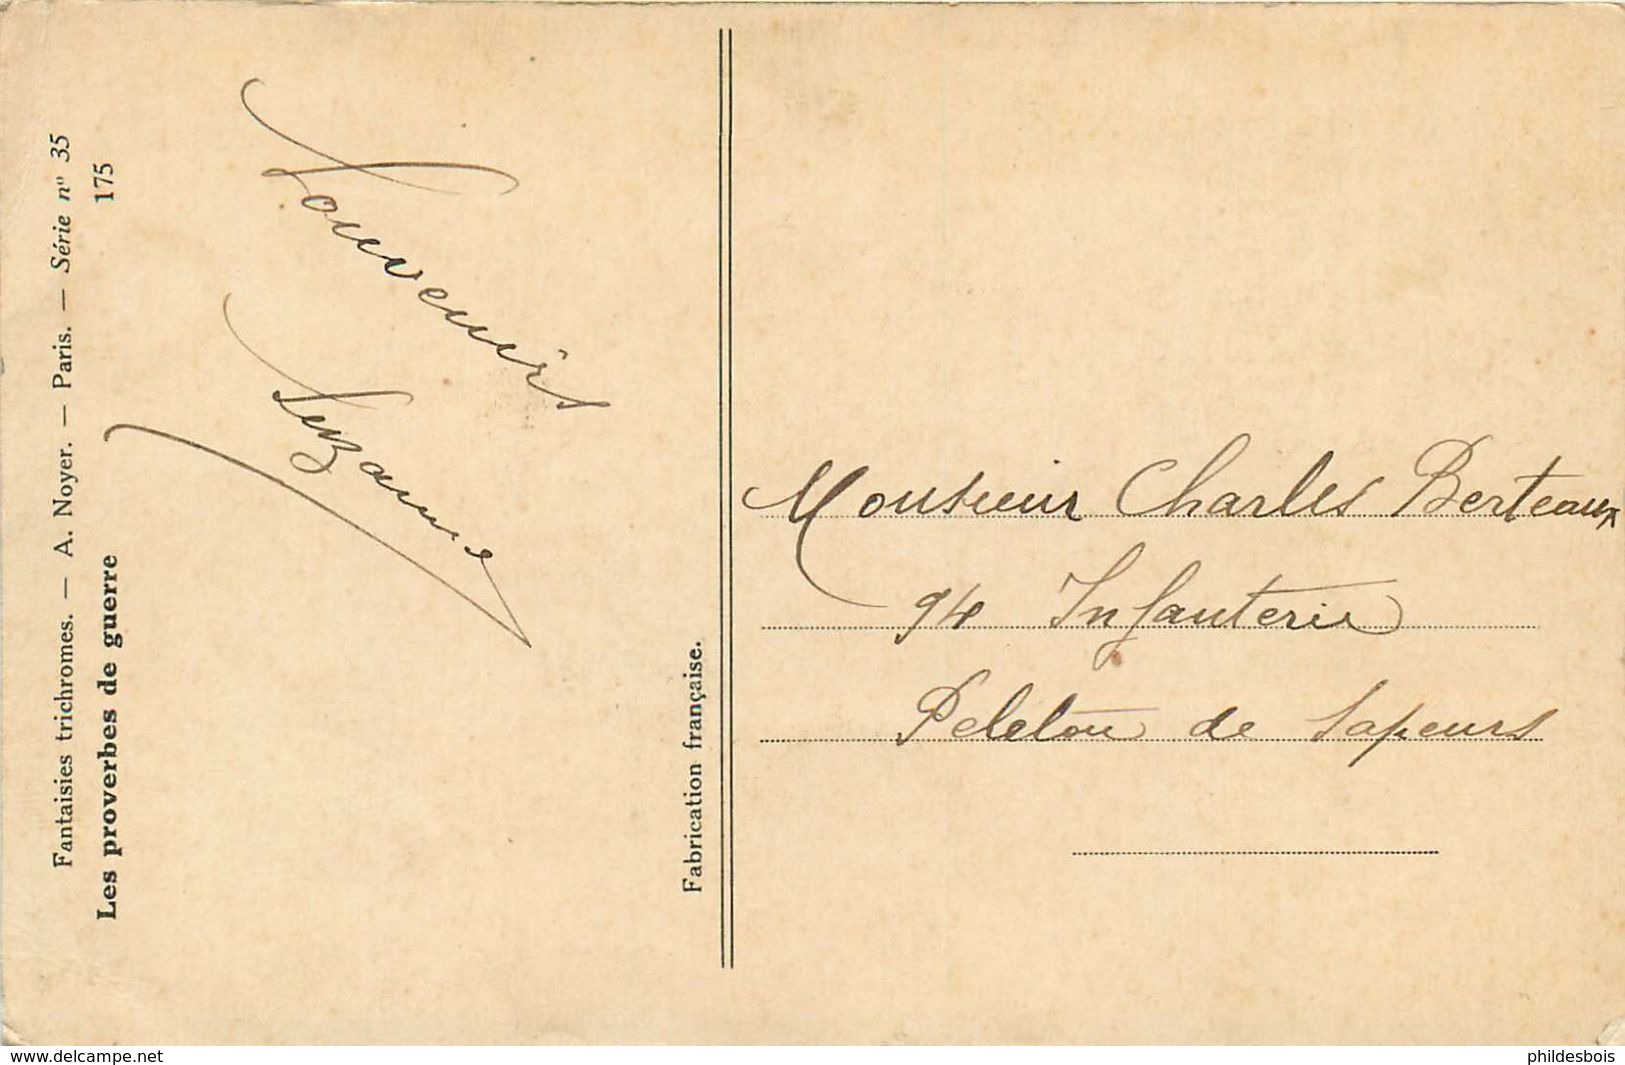 Fantaisies trichromes. — A. Noyer. — Paris. — Série nº 35
Les proverbes de guerre 175
Souvenirs
Suzanne
Fabrication française.
Monsieur Charles Berteaux
94 Infanterie
Peleton de Sapeurs
www.delcampe.net
phildesbois